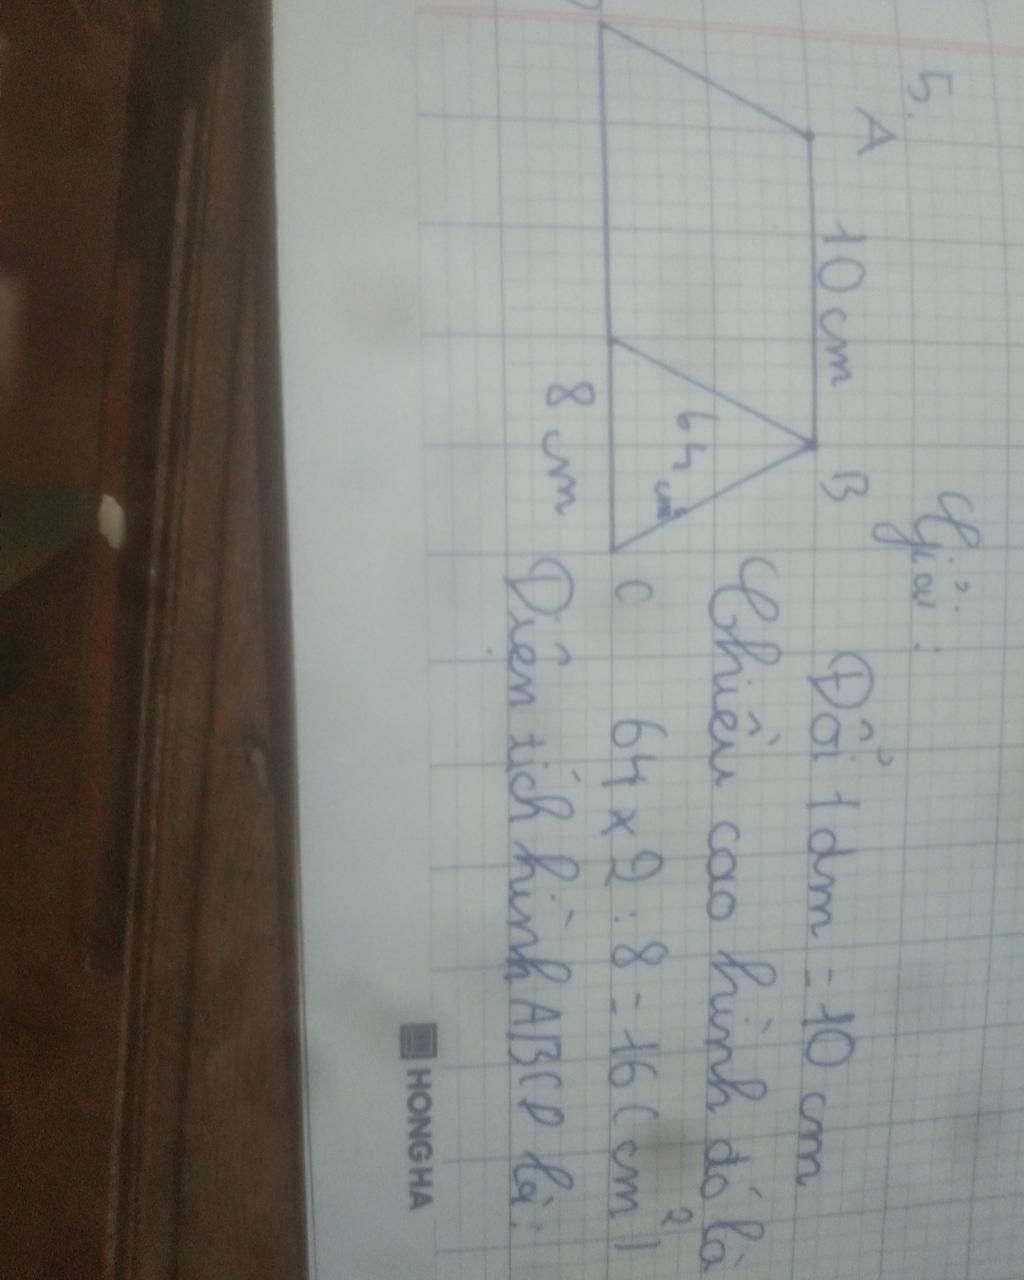 5.
Giải:
A 10 cm B
Đổi 1 dm = 10 cm
Chiều cao hình đó là
64 cm²
C
64 x 2 : 8 = 16 (cm²)
8 cm
Diện tích hình ABCD là:
HONG HA